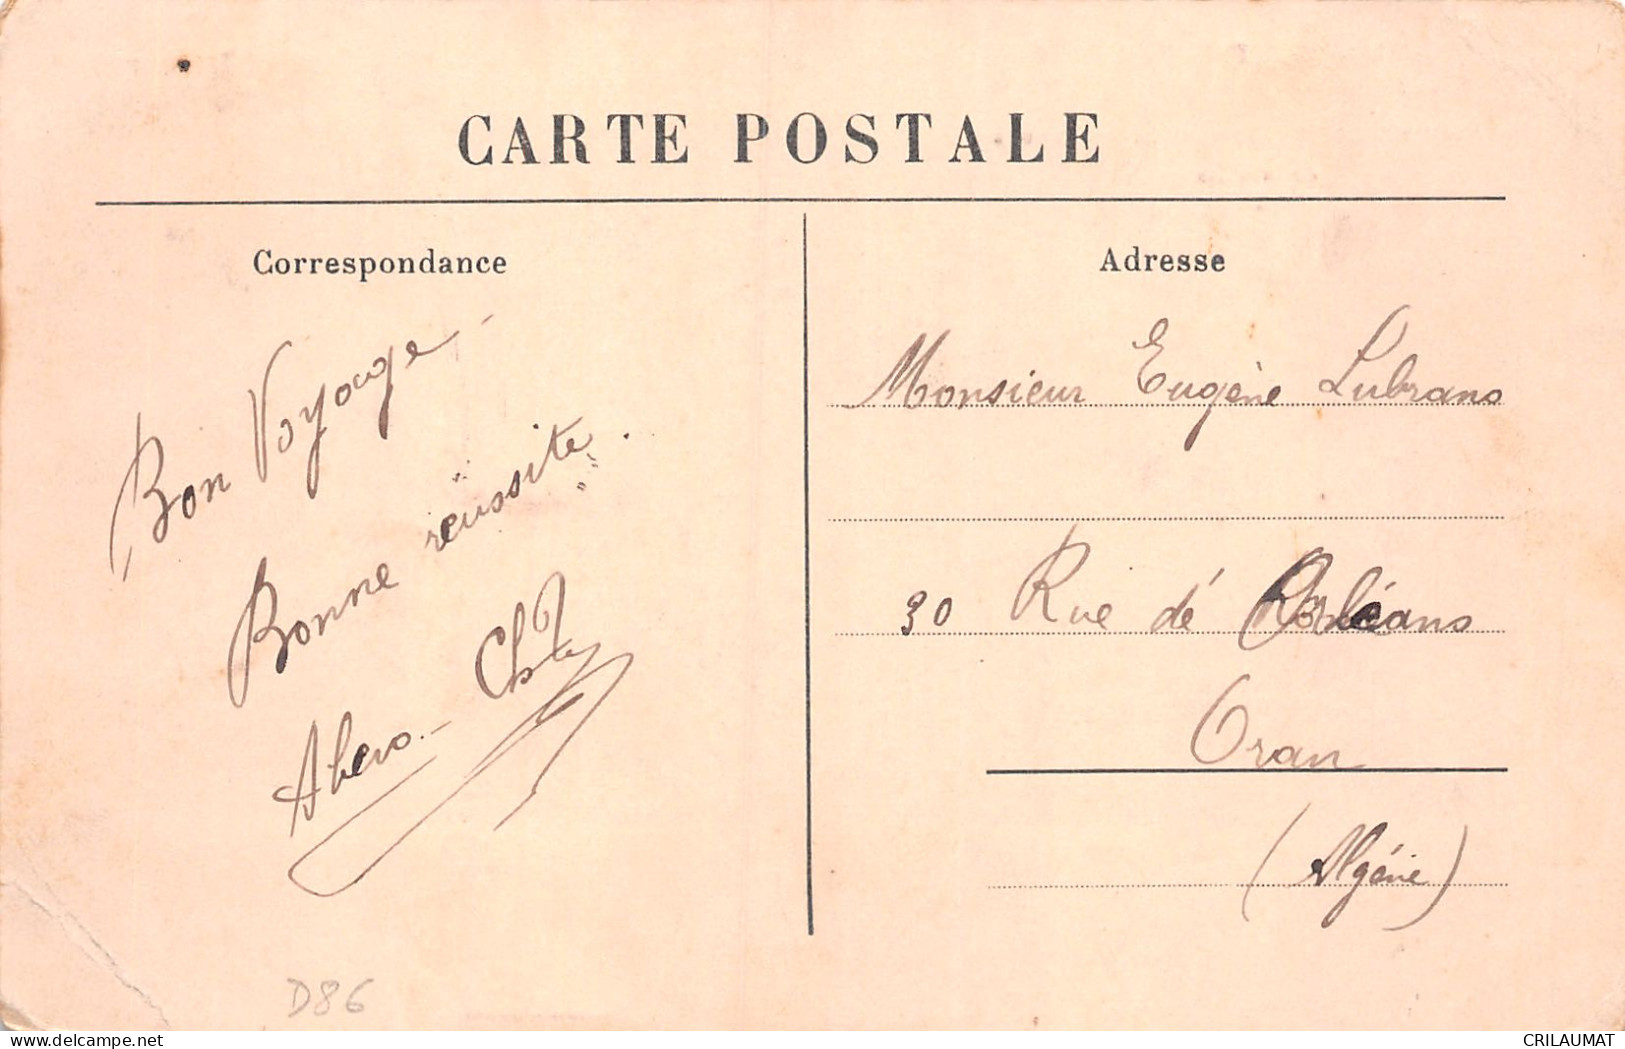 CARTE POSTALE
Correspondance
Bon Voyage
Bonne réussite.
Adresse
Monsieur Eugène Lubrano
30 Rue dé Orléans
Oran
(Algérie)
D86
CRILAUMAT